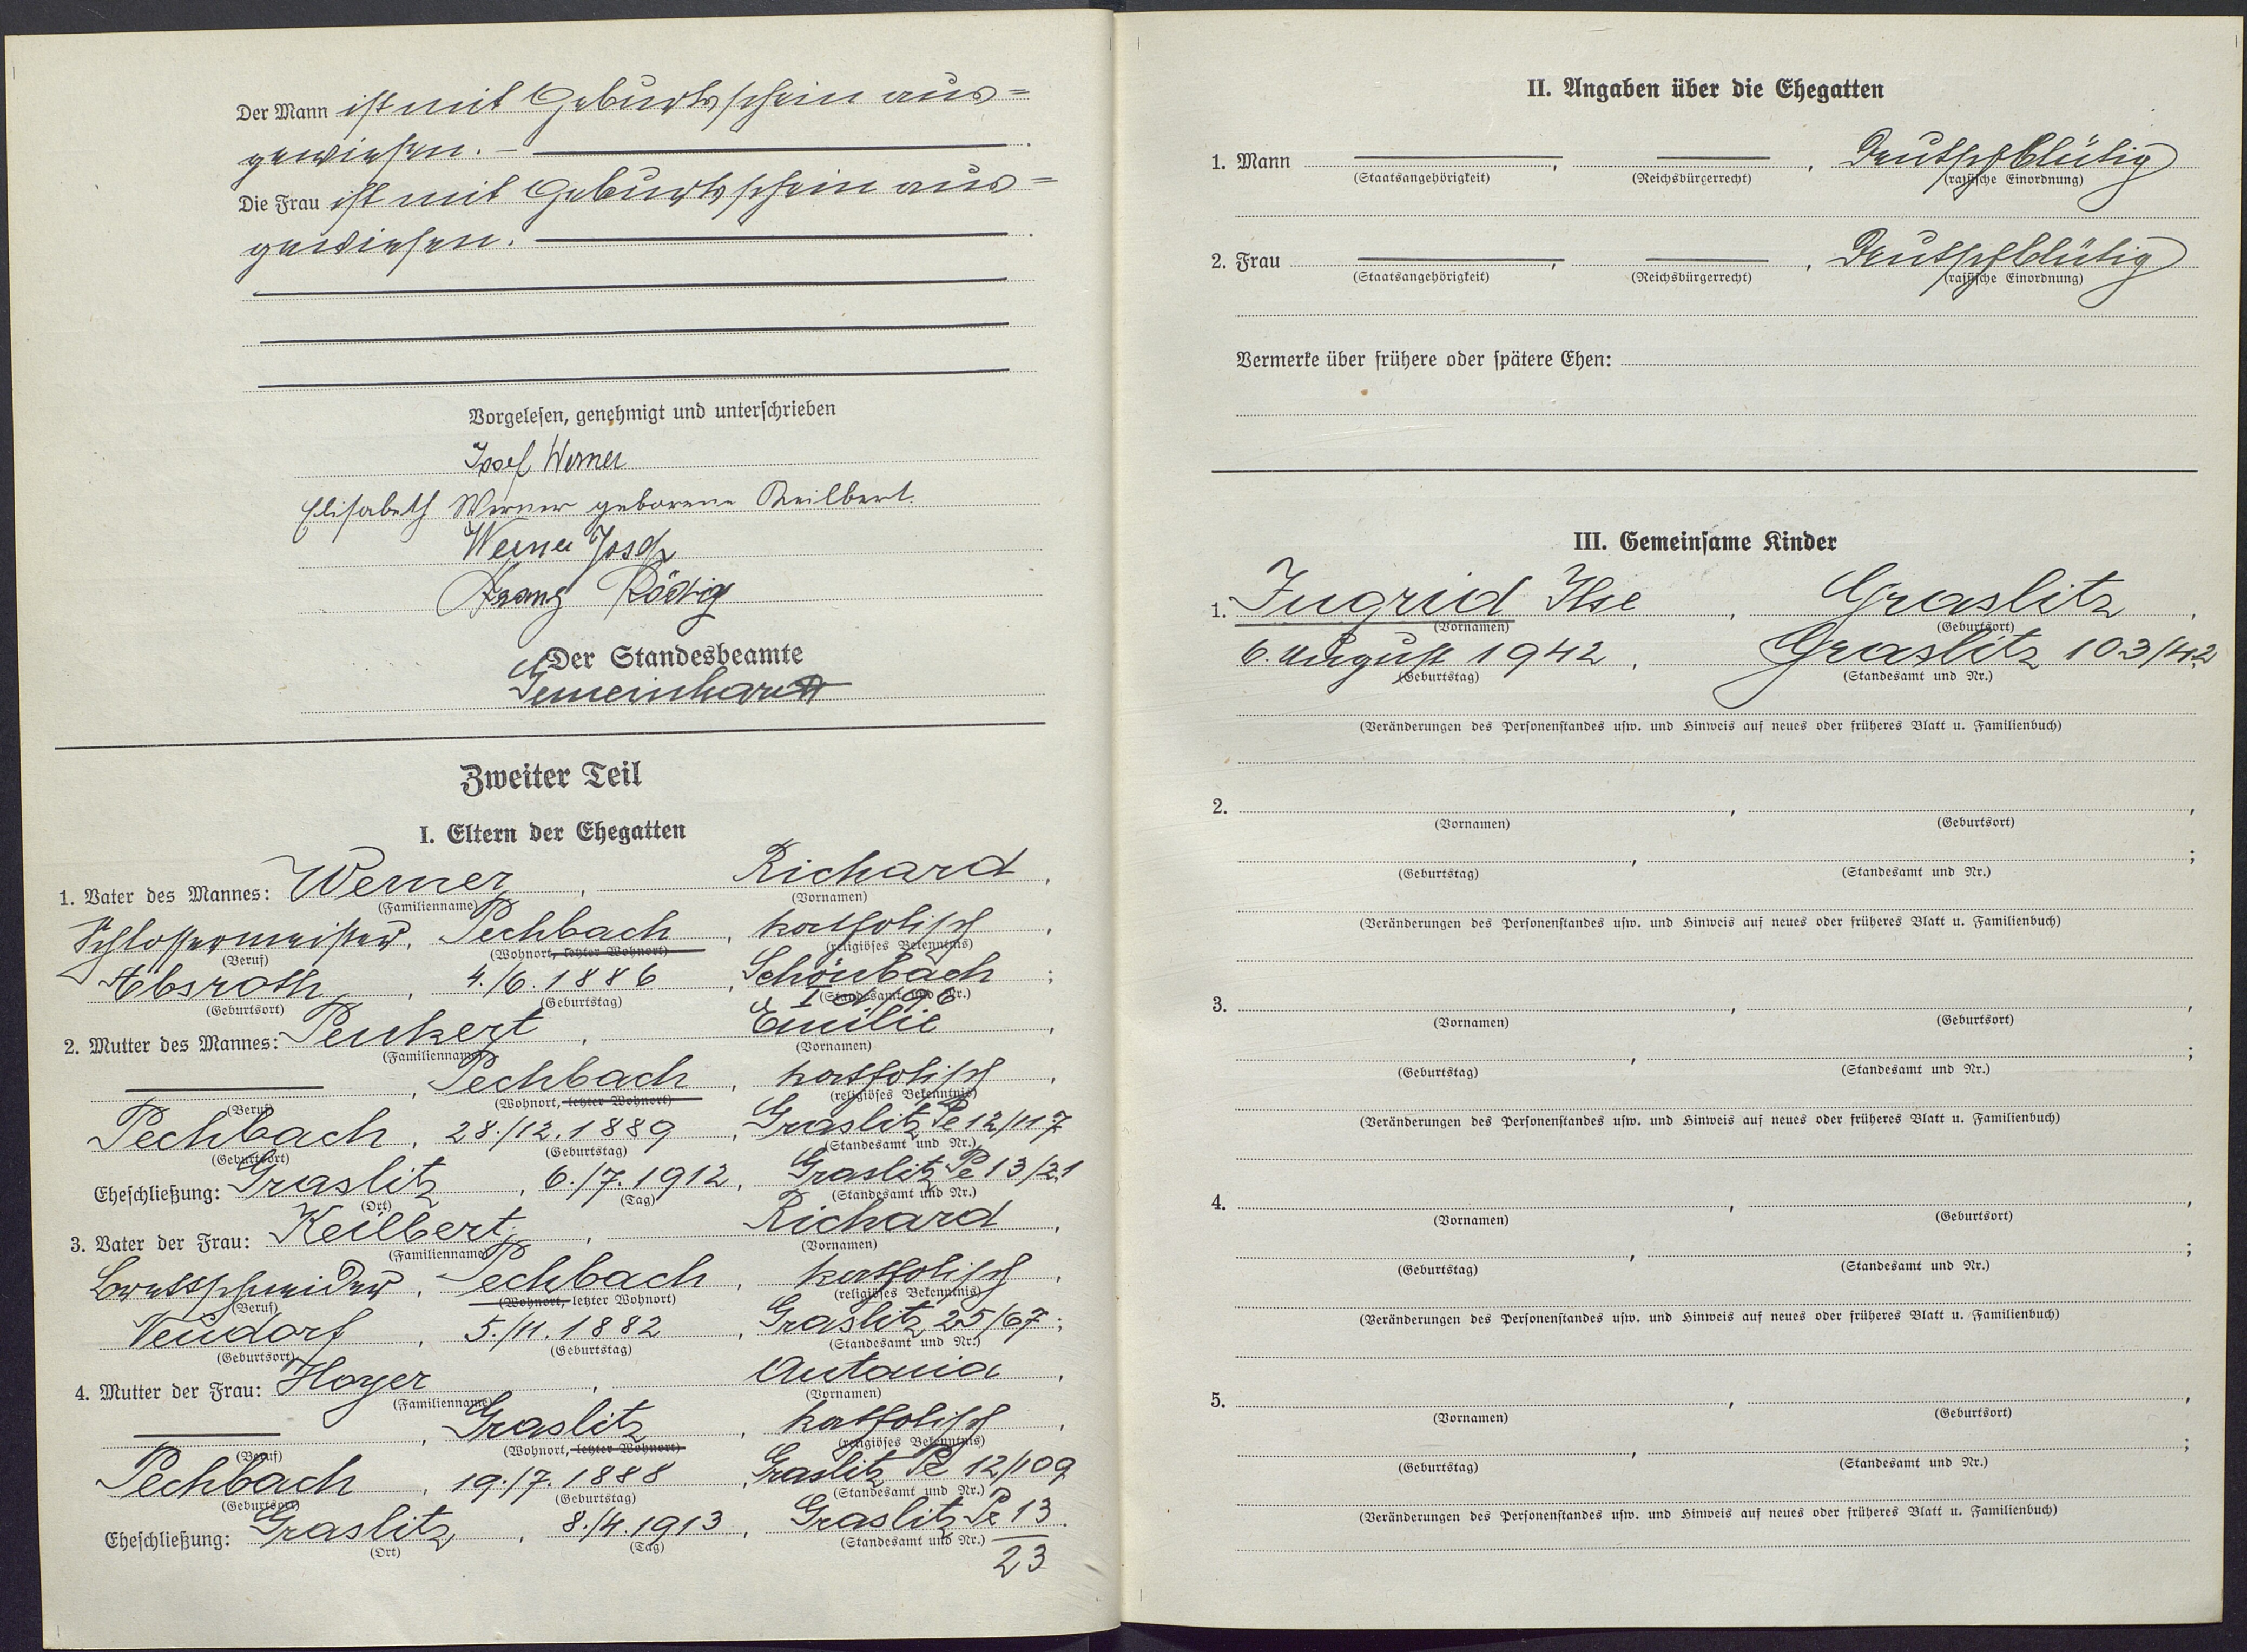 Der Mann ist mit Geburtsschein aus=
gewiesen. —
Die Frau ist mit Geburtsschein aus=
gewiesen.
Vorgelesen, genehmigt und unterschrieben
Josef Werner
Elisabeth Werner geborene Keilbert.
Werner Josef
Franz Rödig
Der Standesbeamte
Gemeinhardt
Zweiter Teil
I. Eltern der Ehegatten
1. Vater des Mannes: Werner, Richard,
(Familienname) (Vornamen)
Schlossermeister, Pechbach, katholisch,
(Beruf) (Wohnort, letzter Wohnort) (religiöses Bekenntnis)
Absroth, 4./6.1886, Schönbach;
(Geburtsort) (Geburtstag) (Standesamt und Nr.)
2. Mutter des Mannes: Penkert, Emilie,
(Familienname) (Vornamen)
, Pechbach, katholisch,
(Beruf) (Wohnort, letzter Wohnort) (religiöses Bekenntnis)
Pechbach, 28./12.1889, Graslitz Pe 12/117
(Geburtsort) (Geburtstag) (Standesamt und Nr.)
Eheschließung: Graslitz, 6./7.1912, Graslitz Pe 13/21
(Ort) (Tag) (Standesamt und Nr.)
3. Vater der Frau: Keilbert, Richard,
(Familienname) (Vornamen)
Brettschneider, Pechbach, katholisch,
(Beruf) (Wohnort, letzter Wohnort) (religiöses Bekenntnis)
Neudorf, 5./11.1882, Graslitz 25/67;
(Geburtsort) (Geburtstag) (Standesamt und Nr.)
4. Mutter der Frau: Hoyer, Antonia,
(Familienname) (Vornamen)
, Graslitz, katholisch,
(Beruf) (Wohnort, letzter Wohnort) (religiöses Bekenntnis)
Pechbach, 19./7.1888, Graslitz Pe 12/109
(Geburtsort) (Geburtstag) (Standesamt und Nr.)
Eheschließung: Graslitz, 8./4.1913, Graslitz Pe 13.
(Ort) (Tag) (Standesamt und Nr.)
23
II. Angaben über die Ehegatten
1. Mann , , Deutschblütig
(Staatsangehörigkeit) (Reichsbürgerrecht) (rassische Einordnung)
2. Frau , , Deutschblütig
(Staatsangehörigkeit) (Reichsbürgerrecht) (rassische Einordnung)
Vermerke über frühere oder spätere Ehen:
III. Gemeinsame Kinder
1. Ingrid Ilse, Graslitz,
(Vornamen) (Geburtsort)
6. August 1942, Graslitz 103/42
(Geburtstag) (Standesamt und Nr.)
(Veränderungen des Personenstandes usw. und Hinweis auf neues oder früheres Blatt u. Familienbuch)
2. , ,
(Vornamen) (Geburtsort)
, ;
(Geburtstag) (Standesamt und Nr.)
(Veränderungen des Personenstandes usw. und Hinweis auf neues oder früheres Blatt u. Familienbuch)
3. , ,
(Vornamen) (Geburtsort)
, ;
(Geburtstag) (Standesamt und Nr.)
(Veränderungen des Personenstandes usw. und Hinweis auf neues oder früheres Blatt u. Familienbuch)
4. , ,
(Vornamen) (Geburtsort)
, ;
(Geburtstag) (Standesamt und Nr.)
(Veränderungen des Personenstandes usw. und Hinweis auf neues oder früheres Blatt u. Familienbuch)
5. , ,
(Vornamen) (Geburtsort)
, ;
(Geburtstag) (Standesamt und Nr.)
(Veränderungen des Personenstandes usw. und Hinweis auf neues oder früheres Blatt u. Familienbuch)